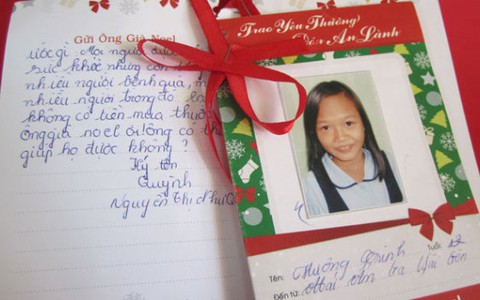 Gửi Ông Già Noel
ước gì Mọi người được
sức khỏe nhưng còn
nhiều người bệnh quá, m
nhiều người trong đó
không có tiền mua thuố
Ông già noel ơi! ông có th
giúp họ được không?
Ký tên
Quỳnh
Nguyễn Thị Như Q
Trao Yêu Thương
Đón An Lành
Tên:
Tuổi: 12
Đến từ: